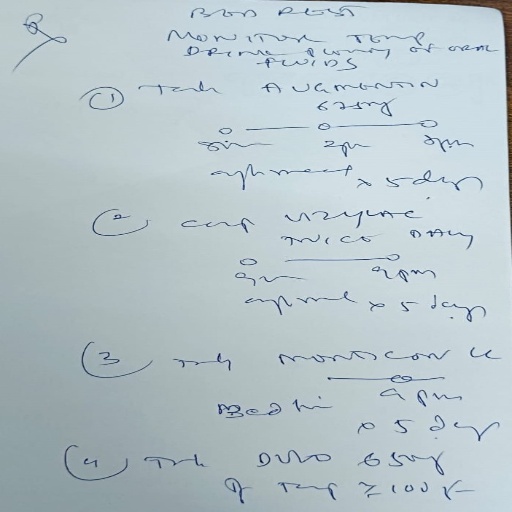 BED REST
MONITOR TEMP
DRINK PLENTY OF ORAL
FLUIDS
① Tab AUGMENTIN
625mg
8am 2pm 8pm
after meal x 5 days
② cap VIZYLAC
TWICE DAILY
9am 9pm
after meal x 5 days
③ Tab MONTICOR LC
9pm
x 5 days
④ Tab DOLO 650mg
if Temp ≥100 F